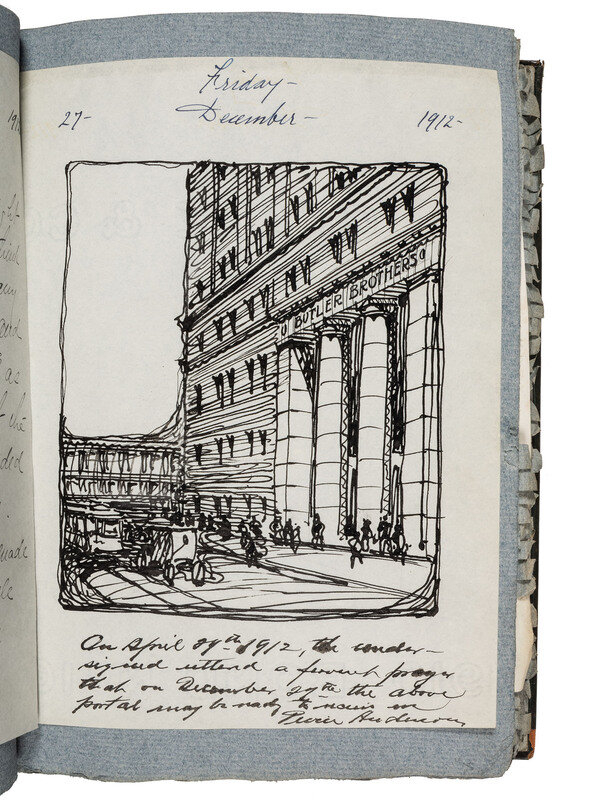 Friday-
27- December- 1912-
BUTLER BROTHERS
On April 29th 1912, the under-
signed uttered a fervent prayer
that on December 27th the above
portal may be ready to receive me
Pierce Anderson